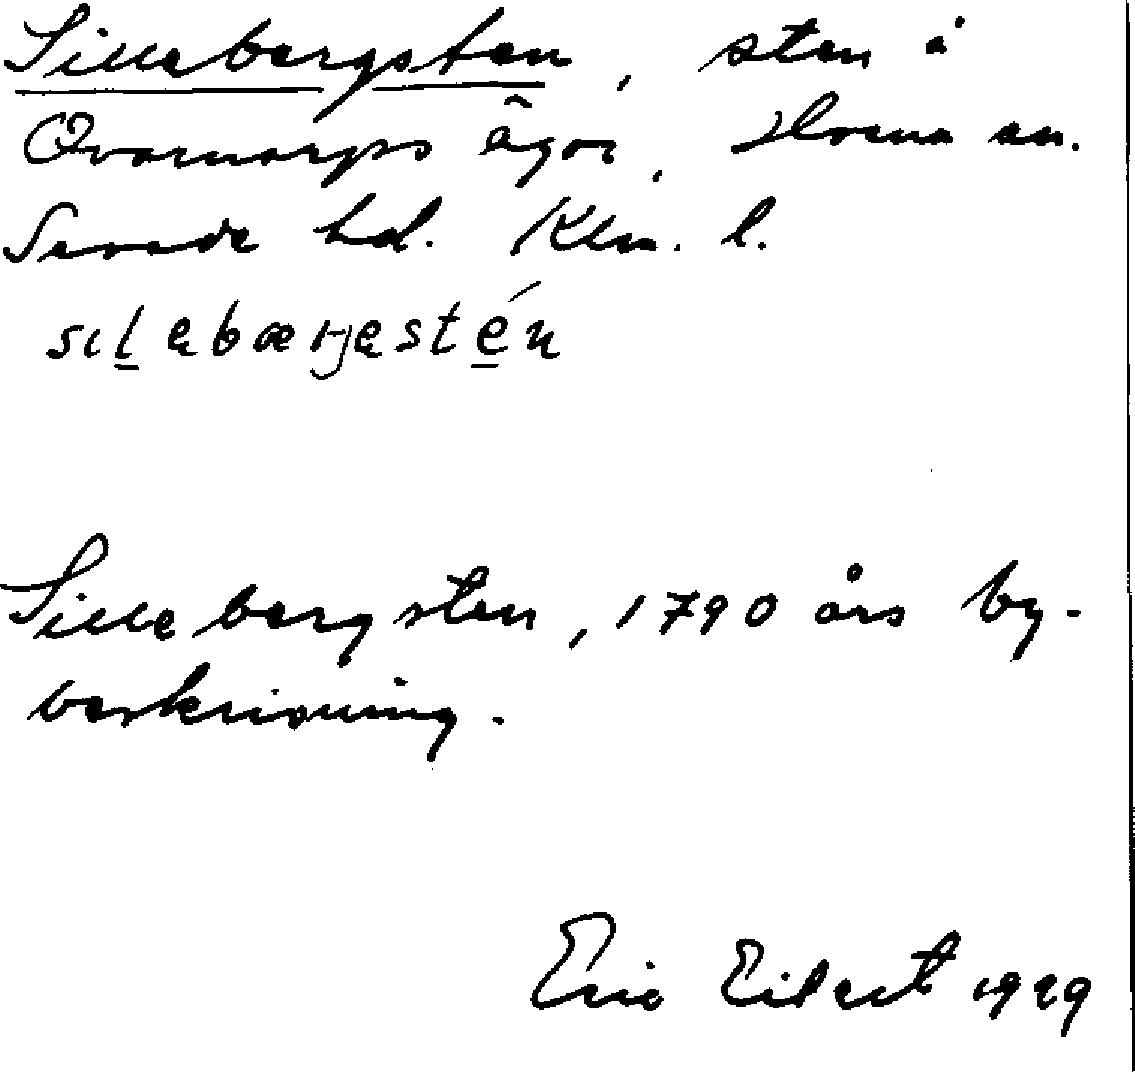 Sillebergsten, sten å
Qvarnarps ägor, Flserna sn.
Sevede hd. Klm. l.
sıl̲ębærjęsté̲n
Sillebergsten, 1790 års by-
beskrivning.
Eric Eilert 1929